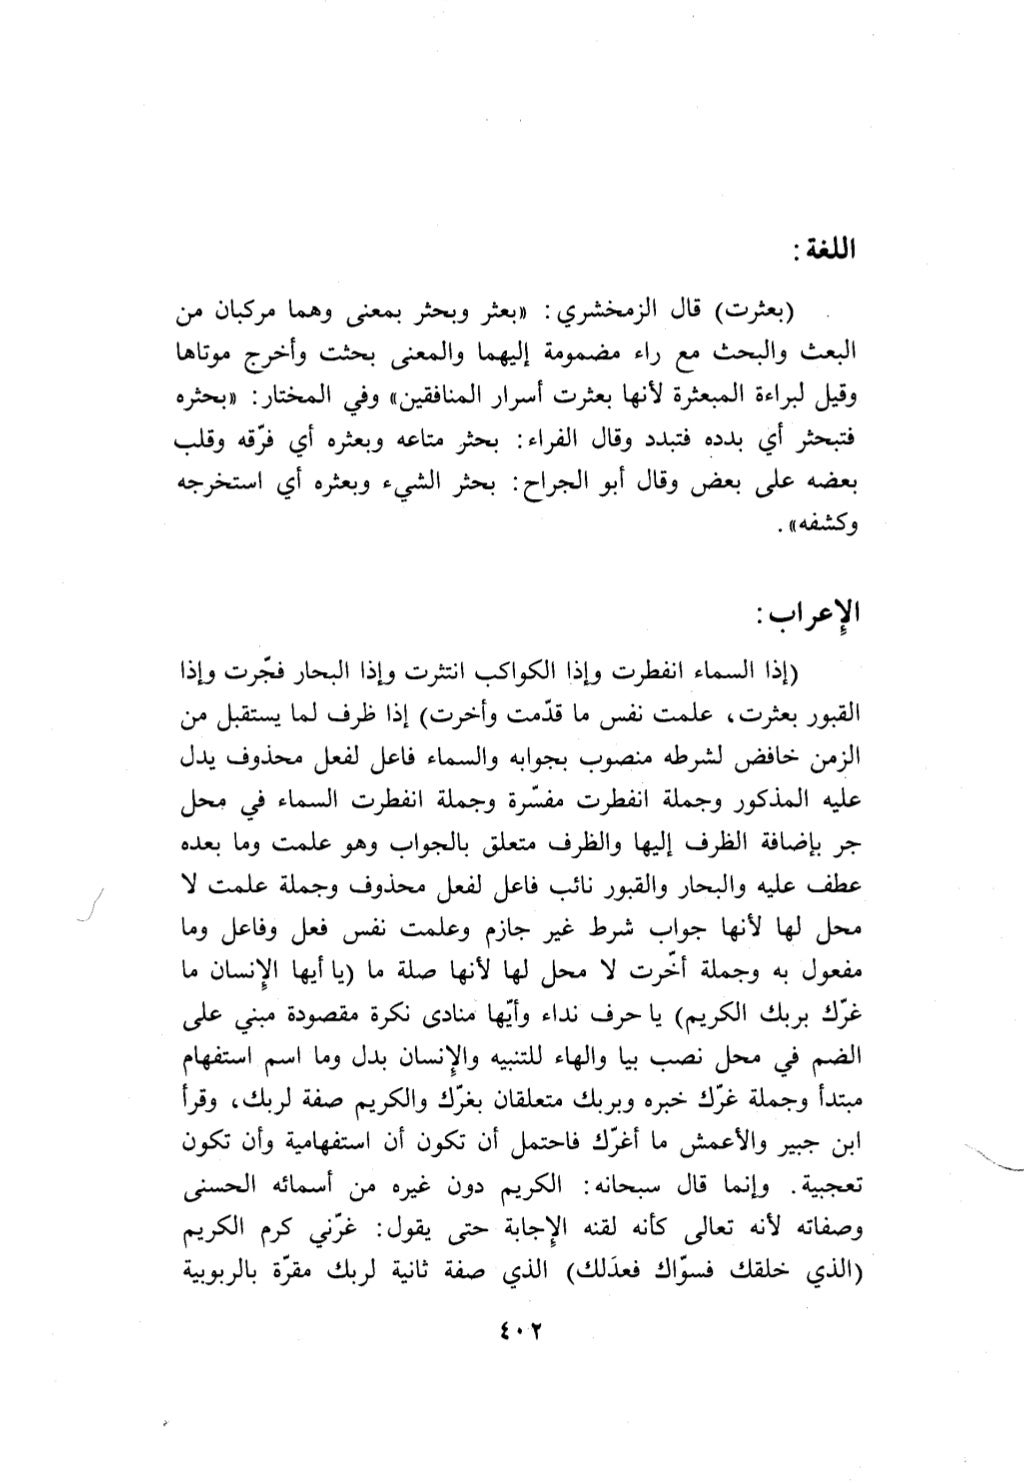 اللغة :
(بعثرت) قال الزمخشري : «بعثر وبحثر بمعنى وهما مركبان من
البعث والبحث مع راء مضمومة إليهما والمعنى بحثت وأخرج موتاها
وقيل لبراءة المبعثرة لأنها بعثرت أسرار المنافقين» وفي المختار : «بحثره
فتبحثر أي بدده فتبدد وقال الفراء : بحثر متاعه وبعثره أي فرّقه وقلب
بعضه على بعض وقال أبو الجراح : بحثر الشيء وبعثره أي استخرجه
وكشفه» .
الإعراب :
(إذا السماء انفطرت وإذا الكواكب انتثرت وإذا البحار فجّرت وإذا
القبور بعثرت، علمت نفس ما قدّمت وأخرت) إذا ظرف لما يستقبل من
الزمن خافض لشرطه منصوب بجوابه والسماء فاعل لفعل محذوف يدل
عليه المذكور وجملة انفطرت مفسّرة وجملة انفطرت السماء في محل
جر بإضافة الظرف إليها والظرف متعلق بالجواب وهو علمت وما بعده
عطف عليه والبحار والقبور نائب فاعل لفعل محذوف وجملة علمت لا
محل لها لأنها جواب شرط غير جازم وعلمت نفس فعل وفاعل وما
مفعول به وجملة أخّرت لا محل لها لأنها صلة ما (يا أيها الإنسان ما
غرّك بربك الكريم) يا حرف نداء وأيّها منادى نكرة مقصودة مبني على
الضم في محل نصب بيا والهاء للتنبيه والإنسان بدل وما اسم استفهام
مبتدأ وجملة غرّك خبره وبربك متعلقان بغرّك والكريم صفة لربك، وقرأ
ابن جبير والأعمش ما أغرّك فاحتمل أن تكون أن استفهامية وأن تكون
تعجبية . وإنما قال سبحانه : الكريم دون غيره من أسمائه الحسنى
وصفاته لأنه تعالى كأنه لقنه الإجابة حتى يقول : غرّني كرم الكريم
(الذي خلقك فسوّاك فعدَلك) الذي صفة ثانية لربك مقرّة بالربوبية
٤٠٢